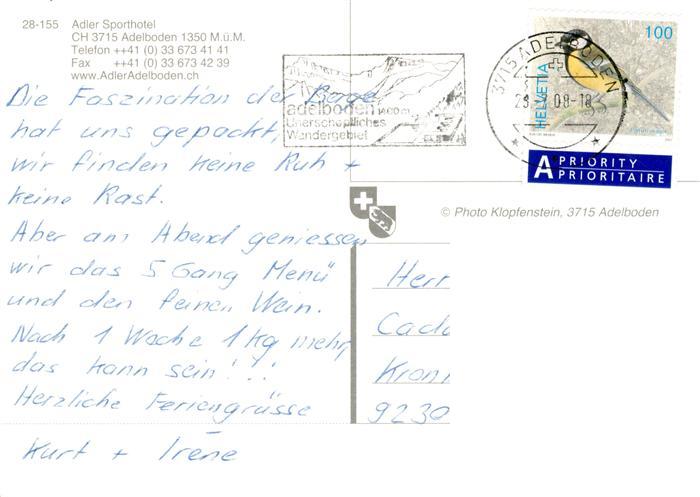 28-155 Adler Sporthotel
CH 3715 Adelboden 1350 M.ü.M.
Telefon ++41 (0) 33 673 41 41
Fax ++41 (0) 33 673 42 39
www.AdlerAdelboden.ch
adelboden 1400 m
Unerschöpfliches
Wandergebiet
3715 ADELBODEN
08-18
HELVETIA
100
A PRIORITY
PRIORITAIRE
© Photo Klopfenstein, 3715 Adelboden
Die Faszination der Berge
hat uns gepackt,
wir finden keine Ruh +
keine Rast.
Aber am Abend geniessen
wir das 5 Gang Menü
und den feinen Wein.
Nach 1 Woche 1 Kg mehr,
das kann sein!!!
Herzliche Feriengrüsse
Kurt + Irène
Herr
9230